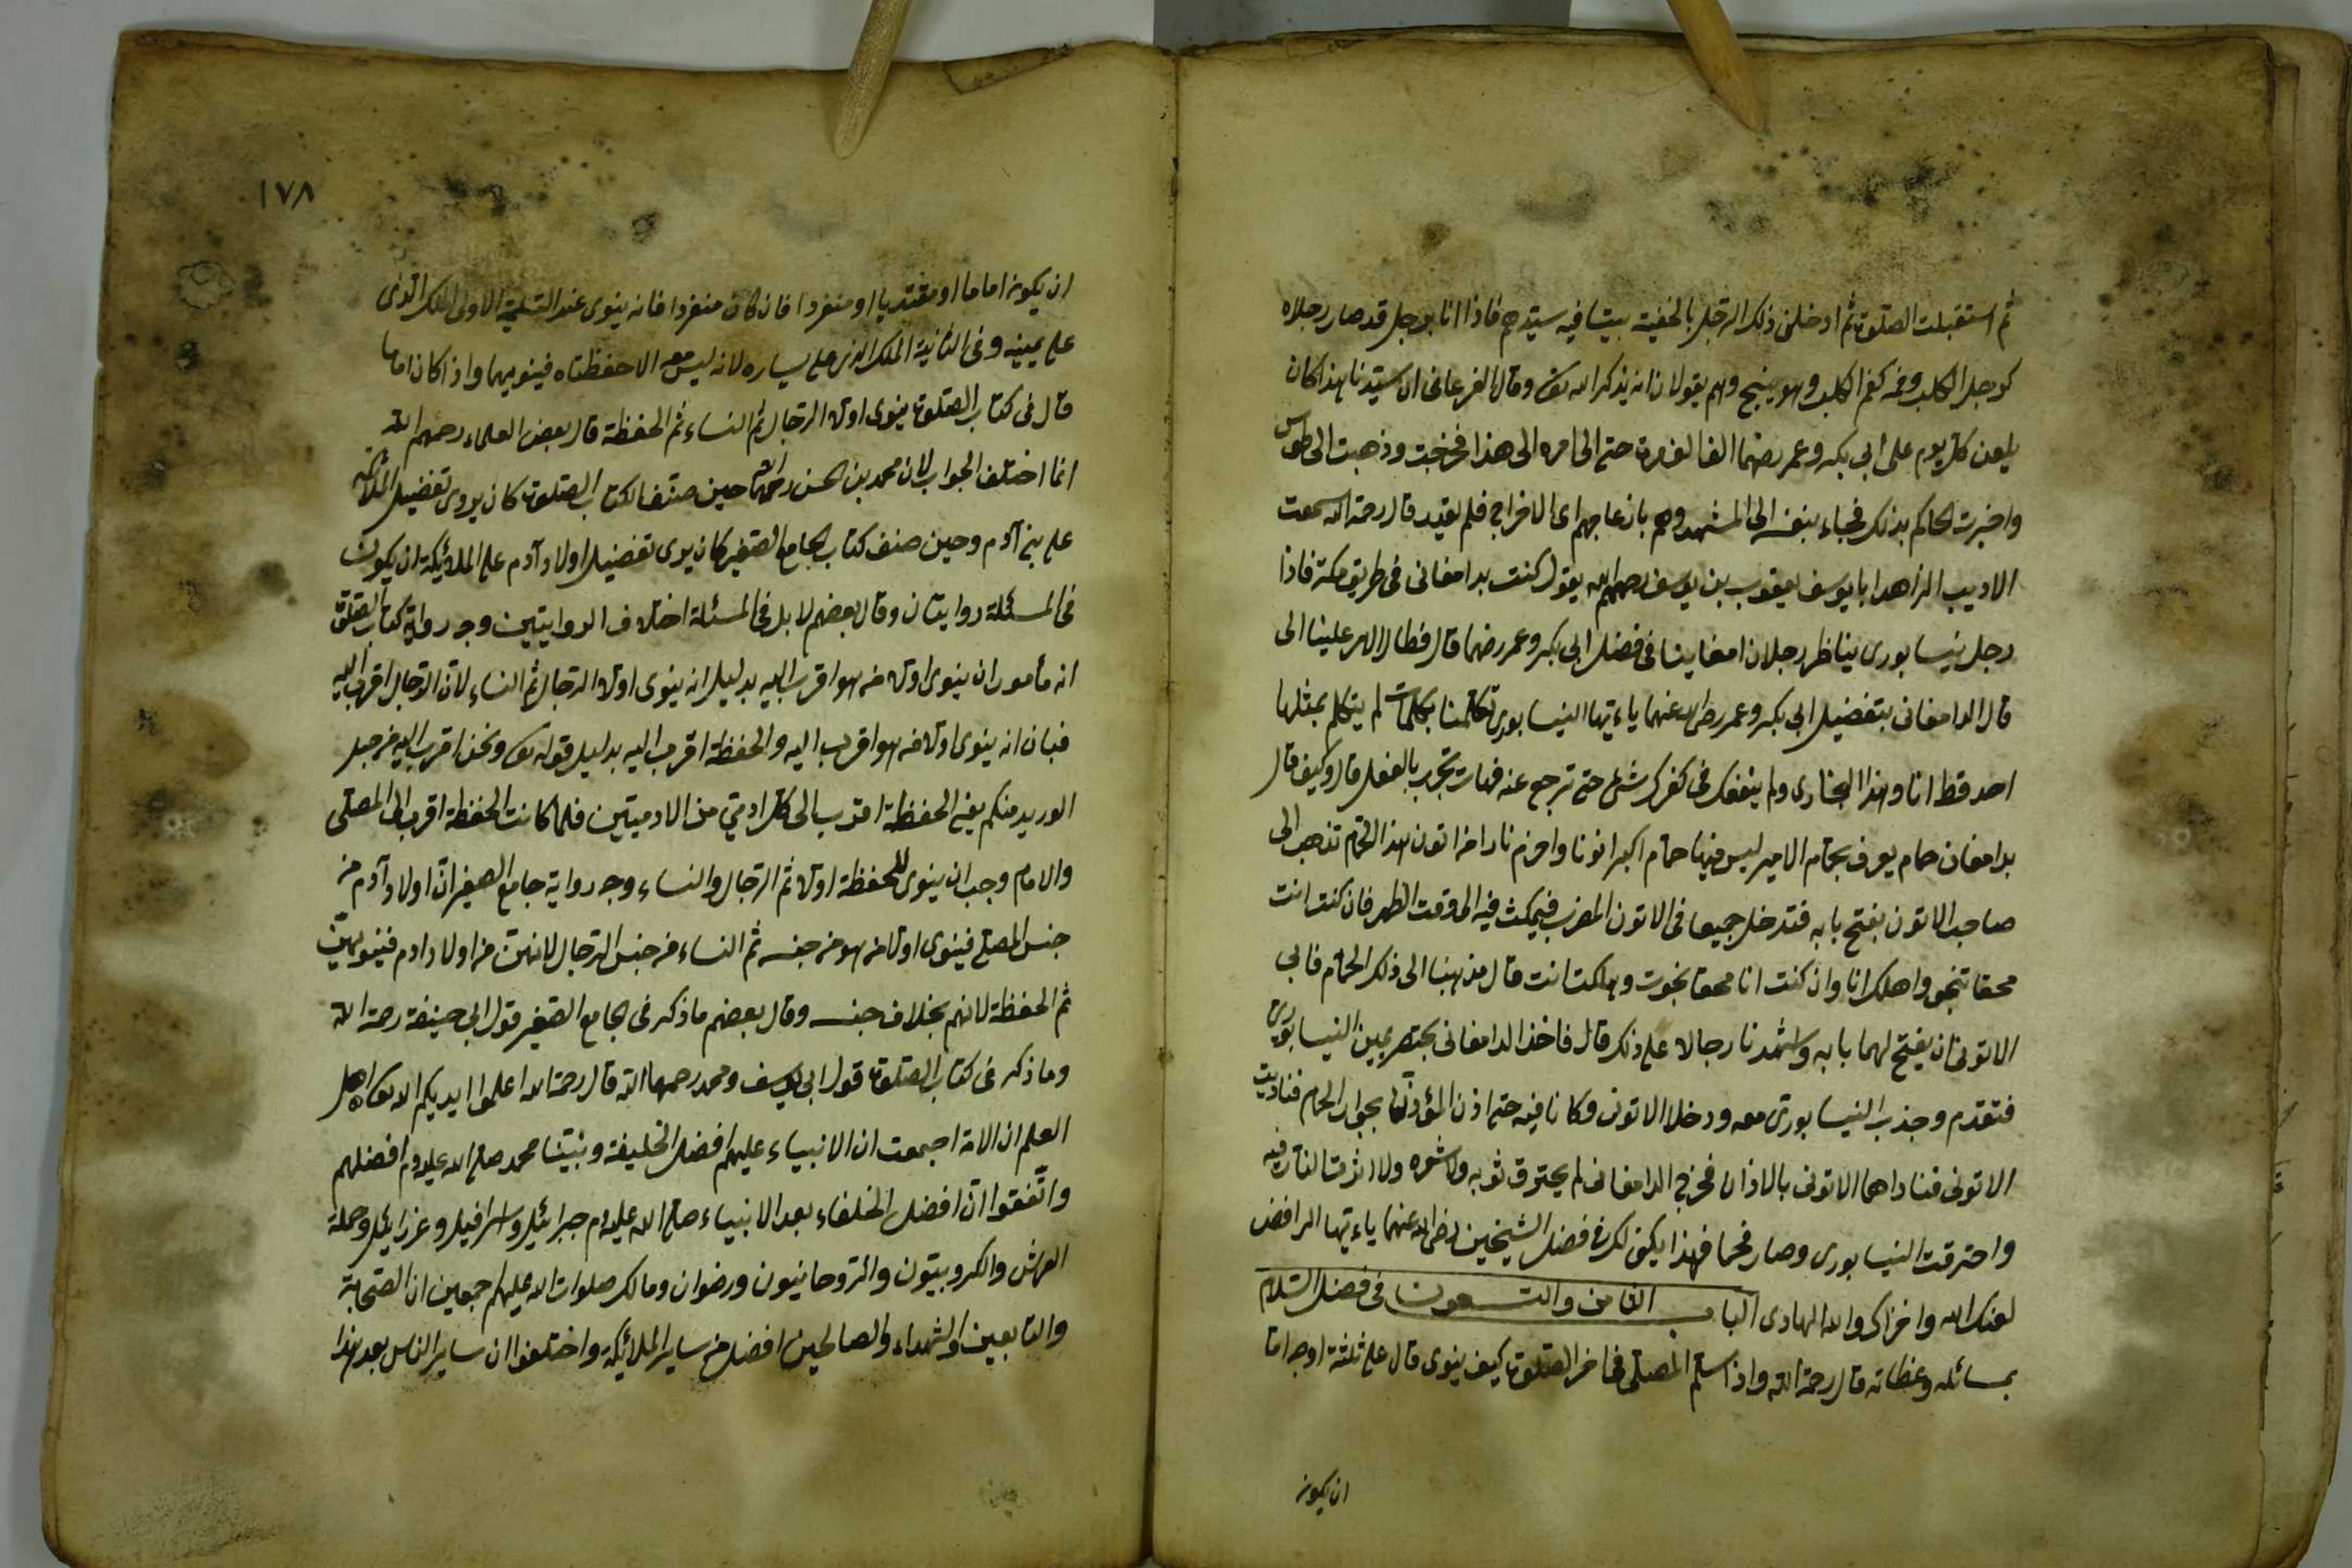 ثم استقبلت الصلوة ثم ادخلنى ذلك الرجل بالخفية بيتا فيه سيدهم فاذا انا برجل قد صار رجلاه
كرجل الكلب وفمه كفم الكلب وهو ينبح وهم يقولان انه يذكر الله تعالى وقال الفرغانى ان سيدنا هذا كان
يلعن كل يوم على ابى بكر وعمر رضهما الفا الف مرة حتى الى امره الى هذا فخرجت وذهبت الى طوس
واخبرت الحاكم بذلك فجاء بنفسه الى المشهد وهم بازعاجهم اى الاخراج فلم يقدر قال رحمة الله سمعت
الاديب الزاهد ابا يوسف يعقوب بن يوسف رحمهم الله يقول كنت بدامغانى فى طريق مكة فاذا
رجل نيسابورى يناظر رجلان امغانيا فى فضل ابى بكر وعمر رضهما قال فطال الامر علينا الى
قال الدامغانى بتفضيل ابى بكر وعمر رضى الله عنهما ياءيتها النيسابورى تكلمنا بكلمات لم يتكلم بمثلها
احد قط انا وهذا البخارى ولم ينفعك فى كفرك شىء حتى ترجع عنه فهات نجرب بالفعل قال وكيف قال
بدامغان حمام يعرف بحمام الامير ليس فيها حمام اكبر اتونا واحزم نارا من اتون هذا الحمام نذهب الى
صاحب الاتون بفتح بابه فندخل جميعا فى الاتون المغرب فيمكث فيه الى وقت الظهر فان كنت انت
محقا تنجو واهلك انا وان كنت انا محقا نجوت وهلكت انت قال من هنا الى ذلك الحمام فابى
الاتونى ان يفتح لهما بابه واشهدنا رجالا على ذلك قال فاخذ الدامغانى بخنصر يمين النيسابورى
فتقدم وجذب النيسابورى معه ودخلا الاتون وكانا فيه حتى اذن المؤذن بجوار الحمام فناديت
الاتونى فناداهما الاتونى بالاذان فخرج الدامغانى لم يحترق ثوبه ولا شعره ولا اثرت النار فيه
واحترقت النيسابورى وصار فحما فهذا يكفى لك فى فضل الشيخين رضى الله عنهما ياءيتها الرافض
لعنك الله واخزاك والله الهادى الباب الثامن والتسعون فى فضل السلام
بمسائله وعظاته قال رحمة الله واذا سلم المصلى فى اخر الصلوة كيف ينوى قال على ثلثة اوجه اما
ان يكون
١٧٨
ان يكون اماما او مقتديا او منفردا فان كان منفردا فانه ينوى عند التسليمة الاولى الملك الذى
على يمينه وفى الثانية الملك الذى على يساره لانه ليس معه الا حفظتاه فينويهما واذا كان اماما
قال فى كتاب الصلوة ينوى اولا الرجال ثم النساء ثم الحفظة قال بعض العلماء رحمهم الله
انما اختلف الجواب لان محمد بن الحسن رحمهما الله حين صنف كتاب الصلوة كان يروى تفضيل الملائكة
على بنى آدم وحين صنف كتاب الجامع الصغير كان يرى تفضيل اولاد آدم على الملائيكة ان يكون
فى المسئلة روايتان وقال بعضهم لا بل فى المسئلة اختلاف الروايتين وجه رواية كتاب الصلوة
انه مأمور ان ينوى اولا من هو اقرب اليه بدليل انه ينوى اولا الرجال ثم النساء لان الرجال اقرب اليه
فبان انه ينوى اولا من هو اقرب اليه والحفظة اقرب اليه بدليل قوله تعالى ونحن اقرب اليه من حبل
الوريد منكم يعنى الحفظة اقرب الى كل ادمى من الادميين فلما كانت الحفظة اقرب الى المصلى
والامام وجب ان ينوى للحفظة اولا ثم الرجال والنساء وجه رواية جامع الصغير ان اولاد آدم من
جنس المصلى فينوى اولا من هو من جنسه ثم النساء من جنس الرجال لانهن من اولاد ادم فينويهن
ثم الحفظة لانهم بخلاف جنسه وقال بعضهم ما ذكر فى الجامع الصغير قول ابى حنيفة رحمة الله
وما ذكر فى كتاب الصلوة قول ابى يوسف ومحمد رحمهما الله قال رحمة الله اعلموا ايديكم الله تعالى اهل
العلم ان الامة اجمعت ان الانبياء عليهم افضل الخليفة ونبينا محمد صلى الله عليه وم افضلهم
واتفقوا ان افضل الخلفاء بعد الانبياء صلى الله عليه وم جبرائيل واسرافيل وعزرائيل وحملة
العرش والكروبيون والروحانيون ورضوان ومالك صلوات الله عليهم اجمعين ان الصحابة
والتابعين والشهداء والصالحين افضل من ساير الملائيكة واختلفوا ان ساير الناس بعد هذا